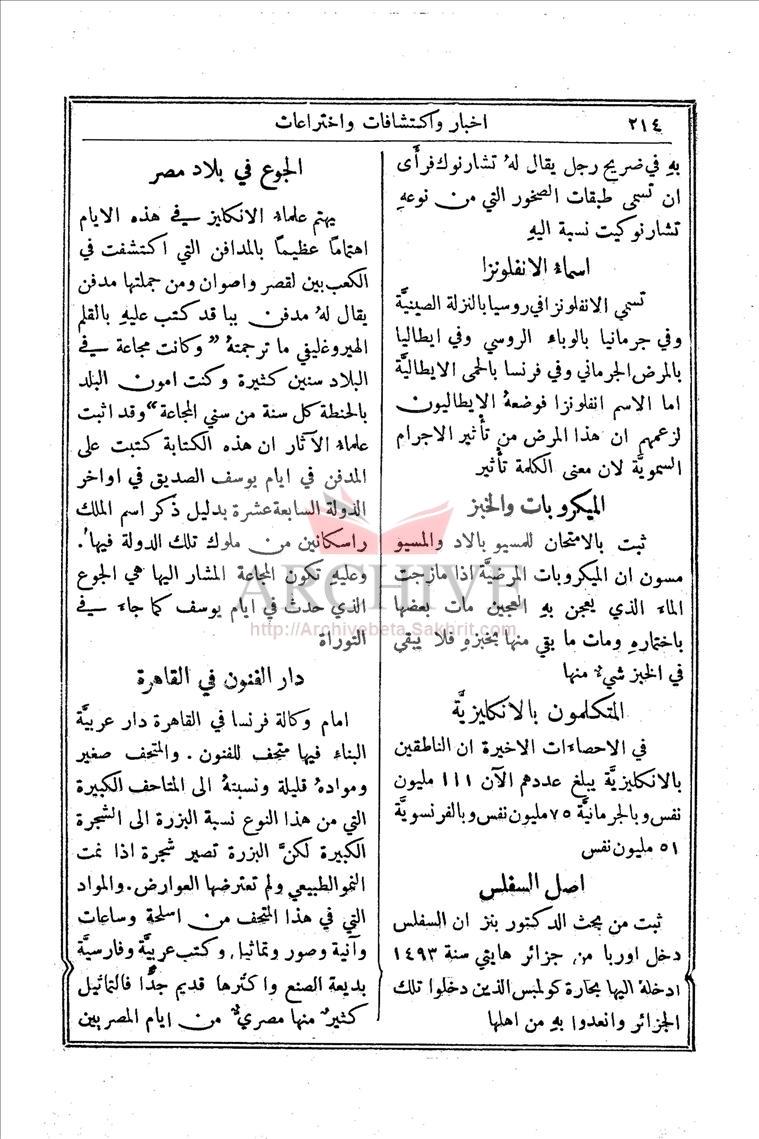 ٢١٤
اخبار واكتشافات واختراعات
بهِ في ضريح رجل يقال لهُ تشارنوك فرأى
ان تسمى طبقات الصخور التي من نوعهِ
تشارنوكيت نسبة اليهِ
اسماءُ الانفلونزا
تسمى الانفلونزا في روسيا بالنزلة الصينيَّة
وفي جرمانيا بالوباء الروسي وفي ايطاليا
بالمرض الجرماني وفي فرنسا بالحمى الايطاليَّة
اما الاسم انفلونزا فوضعهُ الايطاليون
لزعمهم ان هذا المرض من تأثير الاجرام
السمويَّة لان معنى الكلمة تأثير
الميكروبات والخبز
ثبت بالامتحان للمسيو بالاد والمسيو
مسون ان الميكروبات المرضيَّة اذا مازجت
الماءَ الذي يعجن بهِ العجين مات بعضها
باختمارهِ ومات ما بقي منها بخبزهِ فلا يبقى
في الخبز شيءٌ منها
المتكلمون بالانكليزيَّة
في الاحصاءات الاخيرة ان الناطقين
بالانكليزيَّة يبلغ عددهم الآن ١١١ مليون
نفس وبالجرمانيَّة ٧٥ مليون نفس وبالفرنسويَّة
٥١ مليون نفس
اصل السفلس
ثبت من بحث الدكتور بنز ان السفلس
دخل اوربا من جزائر هايتي سنة ١٤٩٣
ادخلهُ اليها بحارة كولمبس الذين دخلوا تلك
الجزائر وانعدوا بهِ من اهلها
الجوع في بلاد مصر
يهتم علماءُ الانكليز في هذه الايام
اهتمامًا عظيمًا بالمدافن التي اكتشفت في
الكعب بين لقصر واصوان ومن جملتها مدفن
يقال لهُ مدفن ببا قد كتب عليهِ بالقلم
الهيروغليفي ما ترجمتهُ "وكانت مجاعة في
البلاد سنين كثيرة وكنت امون البلد
بالحنطة كل سنة من سني المجاعة" وقد اثبت
علماءُ الآثار ان هذه الكتابة كتبت على
المدفن في ايام يوسف الصديق في اواخر
الدولة السابعة عشرة بدليل ذكر اسم الملك
راسكانين من ملوك تلك الدولة فيها.
وعليهِ تكون المجاعة المشار اليها هي الجوع
الذي حدث في ايام يوسف كما جاءَ في
التوراة
دار الفنون في القاهرة
امام وكالة فرنسا في القاهرة دار عربيَّة
البناء فيها متحف للفنون. والمتحف صغير
وموادهُ قليلة ونسبتهُ الى المتاحف الكبيرة
التي من هذا النوع نسبة البزرة الى الشجرة
الكبيرة لكنَّ البزرة تصير شجرة اذا نمت
النمو الطبيعي ولم تعترضها العوارض. والمواد
التي في هذا المتحف من اسلحة وساعات
وآنية وصور وتماثيل وكتب عربيَّة وفارسيَّة
بديعة الصنع واكثرها قديم جدًّا فالتماثيل
كثيرٌ منها مصريٌّ من ايام المصريين
ARCHIVE
http://Archivebeta.Sakhrit.com